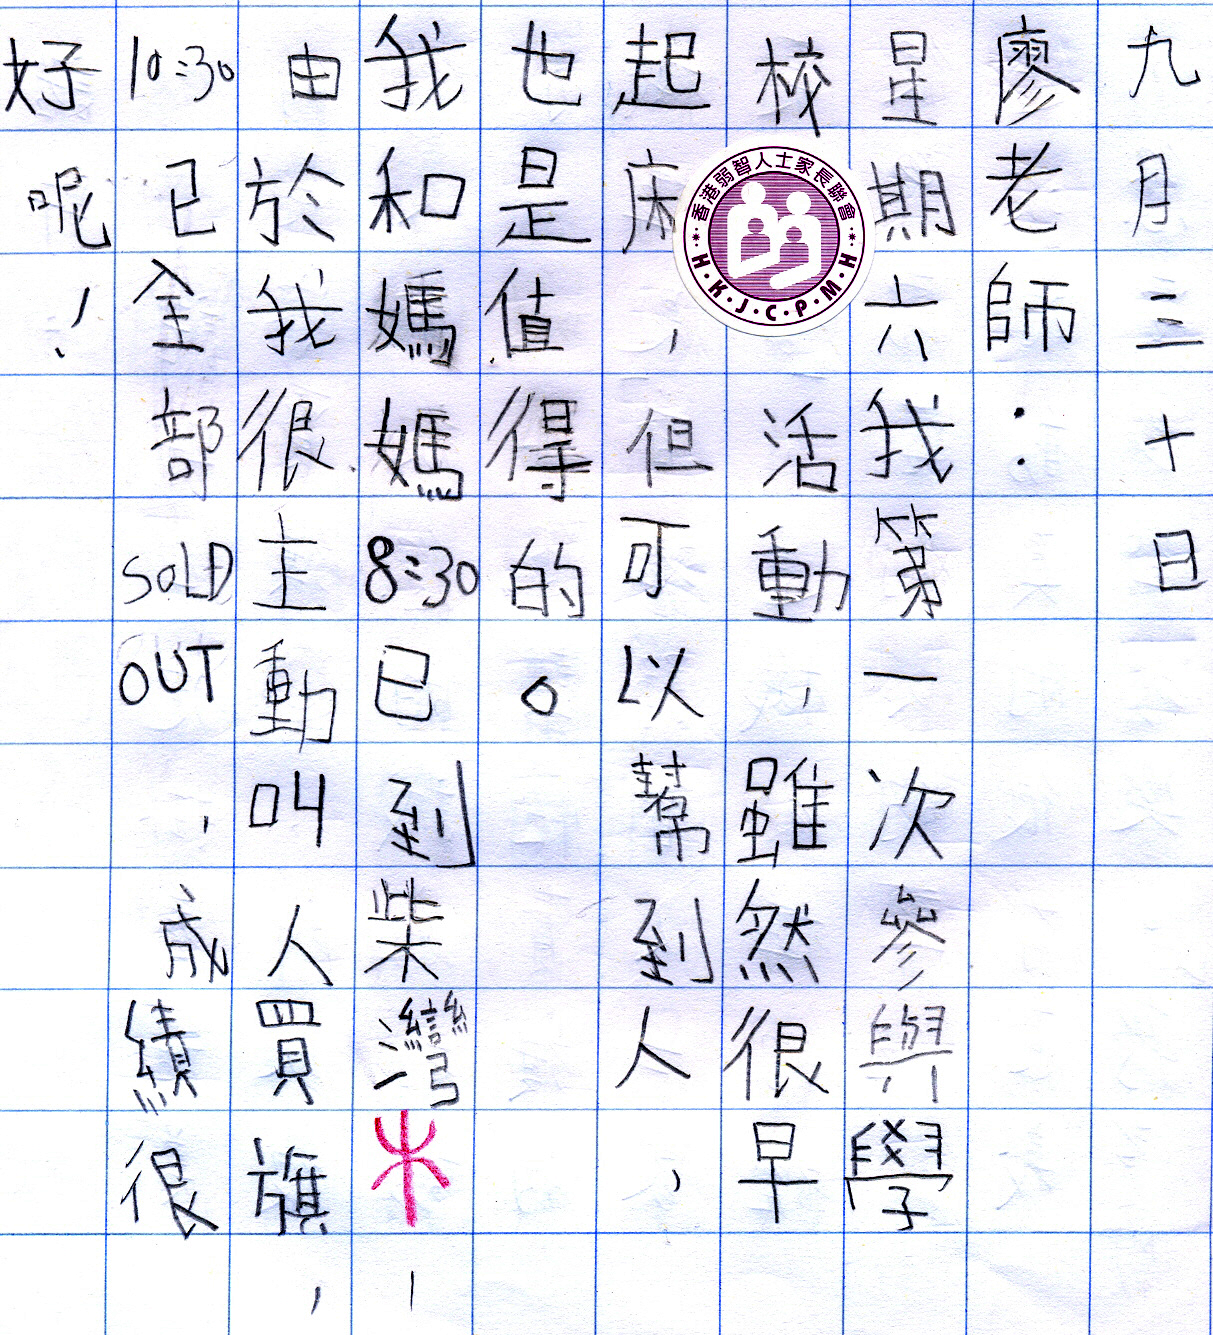 九月三十日
廖老師：
星期六我第一次參與學
校活動，雖然很早
起床，但可以幫到人，
也是值得的。
我和媽媽8:30已到柴灣，
由於我很主動叫人買旗，
10:30已全部SOLD OUT，成績很
好呢！
香港弱智人士家長聯會
H·K·J·C·P·M·H